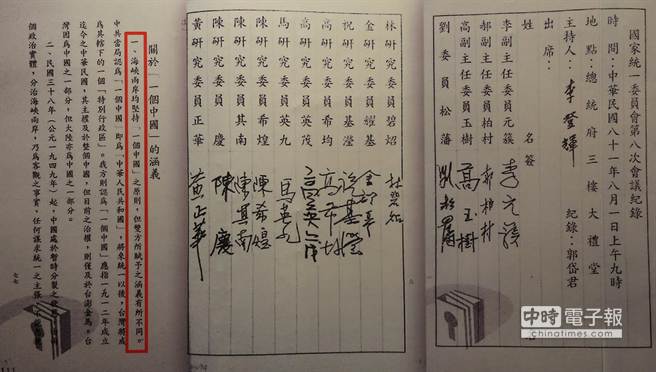 國家統一委員會第八次會議紀錄
時間：中華民國八十一年八月一日上午九時
地點：總統府三樓大禮堂
主持人：李登輝
紀錄：郭岱君
出席：
姓名
簽名
李副主任委員元簇
李元簇
郝副主任委員柏村
郝柏村
高副主任委員玉樹
高玉樹
劉委員松藩
劉松藩
林研究委員碧炤
林碧炤
金研究委員耀基
祝研究委員基瀅
祝基瀅
高研究委員
高研究委員英茂
高英茂
馬研究委員英九
馬英九
陳研究委員希煌
陳希煌
陳研究委員其南
陳其南
陳研究委員慶
陳慶
黃研究委員正華
黃正華
關於「一個中國」的涵義
一、海峽兩岸均堅持「一個中國」之原則，但雙方所賦予之涵義有所不同。
中共當局認為「一個中國」即為「中華人民共和國」，將來統一以後，台灣將成
為其轄下的一個「特別行政區」。我方則認為「一個中國」應指一九一二年成立
迄今之中華民國，其主權及於整個中國，但目前之治權，則僅及於台澎金馬。台
灣固為中國之一部分，但大陸亦為中國之一部分。
二、民國三十八年（公元一九四九年）起，中國處於暫時分裂之
個政治實體，分治海峽兩岸，乃為客觀之事實，任何謀求統一之主張
七七
中時電子報
chinatimes.com